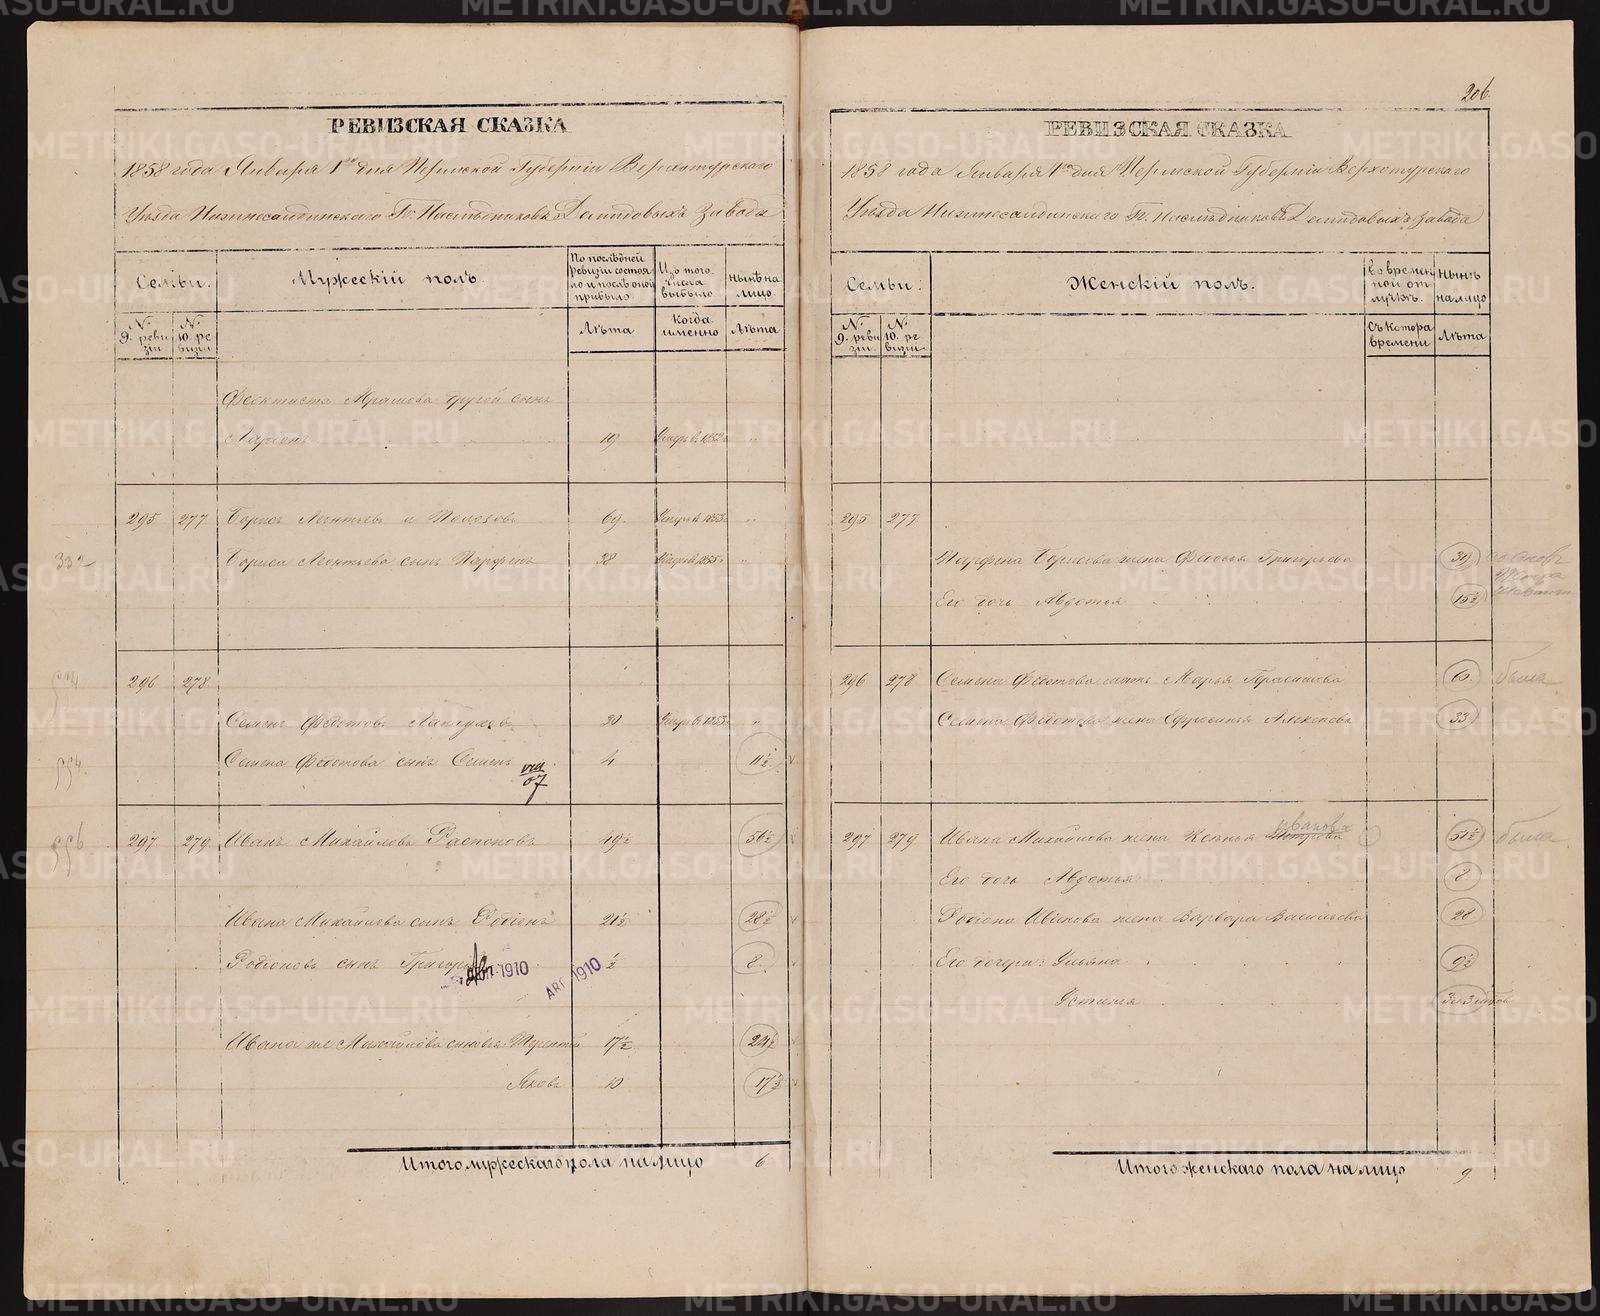 206.
РЕВИЗСКАЯ СКАЗКА
1858 года Января 1го дня Пермской Губерніи Верхотурскаго
Уѣзда Нижнесалдинскаго Гг. Наслѣдниковъ Демидовыхъ завода
Семьи.
Мужескій полъ.
По послѣдней ревизіи состояло и послѣ оной прибыло.
Изъ того числа выбыло.
Нынѣ на лицо.
№ 9. ревизіи
№ 10. ревизіи
Лѣта
Когда именно
Лѣта
Феоктиста другой сынъ
Ларіонъ 19 1852 „
295 277 Борисъ Леонтьевъ 69. 1853 „
332 Бориса Леонтьева сынъ Парфенъ 38 1855 „
296 278
Семенъ Федотовъ 30 1853 „
554 Семена Федотова сынъ Семенъ 4 11½
07
556 297 279 Иванъ Михайловъ Распоповъ 49½ 56½
Ивана Михайлова сынъ Родіонъ 21½ 28½
Родіоновъ сынъ Григорій ½ 8
1910
АВГ 1910
Ивана же Михайлова сыновья: Терентій 17½ 24½
Яковъ 10 17½
Итого мужескаго пола на лицо 6.
РЕВИЗСКАЯ СКАЗКА
1858 года Января 1го дня Пермской Губерніи Верхотурскаго
Уѣзда Нижнесалдинскаго Гг. Наслѣдниковъ Демидовыхъ завода
Семьи:
Женскій полъ.
Во временной отлучкѣ.
Нынѣ на лицо
№ 9. ревизіи
№ 10. ревизіи
Съ котора времени
Лѣта
295 277
Парфена Борисова жена Федосья Григорьева 39
Его дочь Авдотья 15½
296 278 Семена Федотова мать Марья Герасимова была
Семена Федотова жена Ефросинья 33
297 279 Ивана Михайлова жена Ксенья Иванова 51½ была
Его дочь Авдотья 8
Родіона Иванова жена Варвара Васильева 28
Его дочери: Ульяна 9½
Устинья
Итого женскаго пола на лицо 9.
METRIKI.GASO-URAL.RU